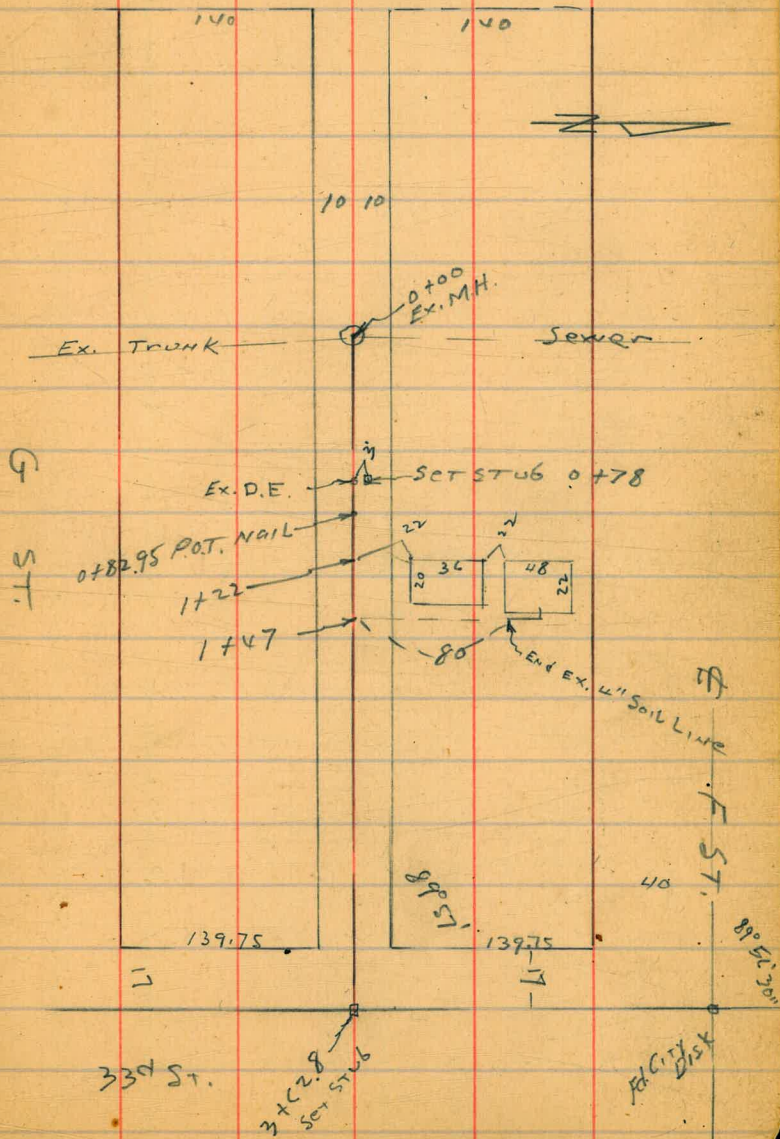 140
140
N
10 10
0+00
Ex. M.H.
Ex. Trunk Sewer
3'
Ex. D.E.
Set Stub 0+78
0+82.95 P.O.T. Nail
22
22
1+22
20
36
48
22
1+47
80
End Ex. 4" Soil Line
G St.
F St.
40
139.75
139.75
17
17
33rd St.
Set Stub
Fd. City
Disk